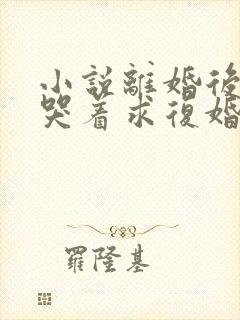 小説離婚後
哭着求復婚
羅隆基